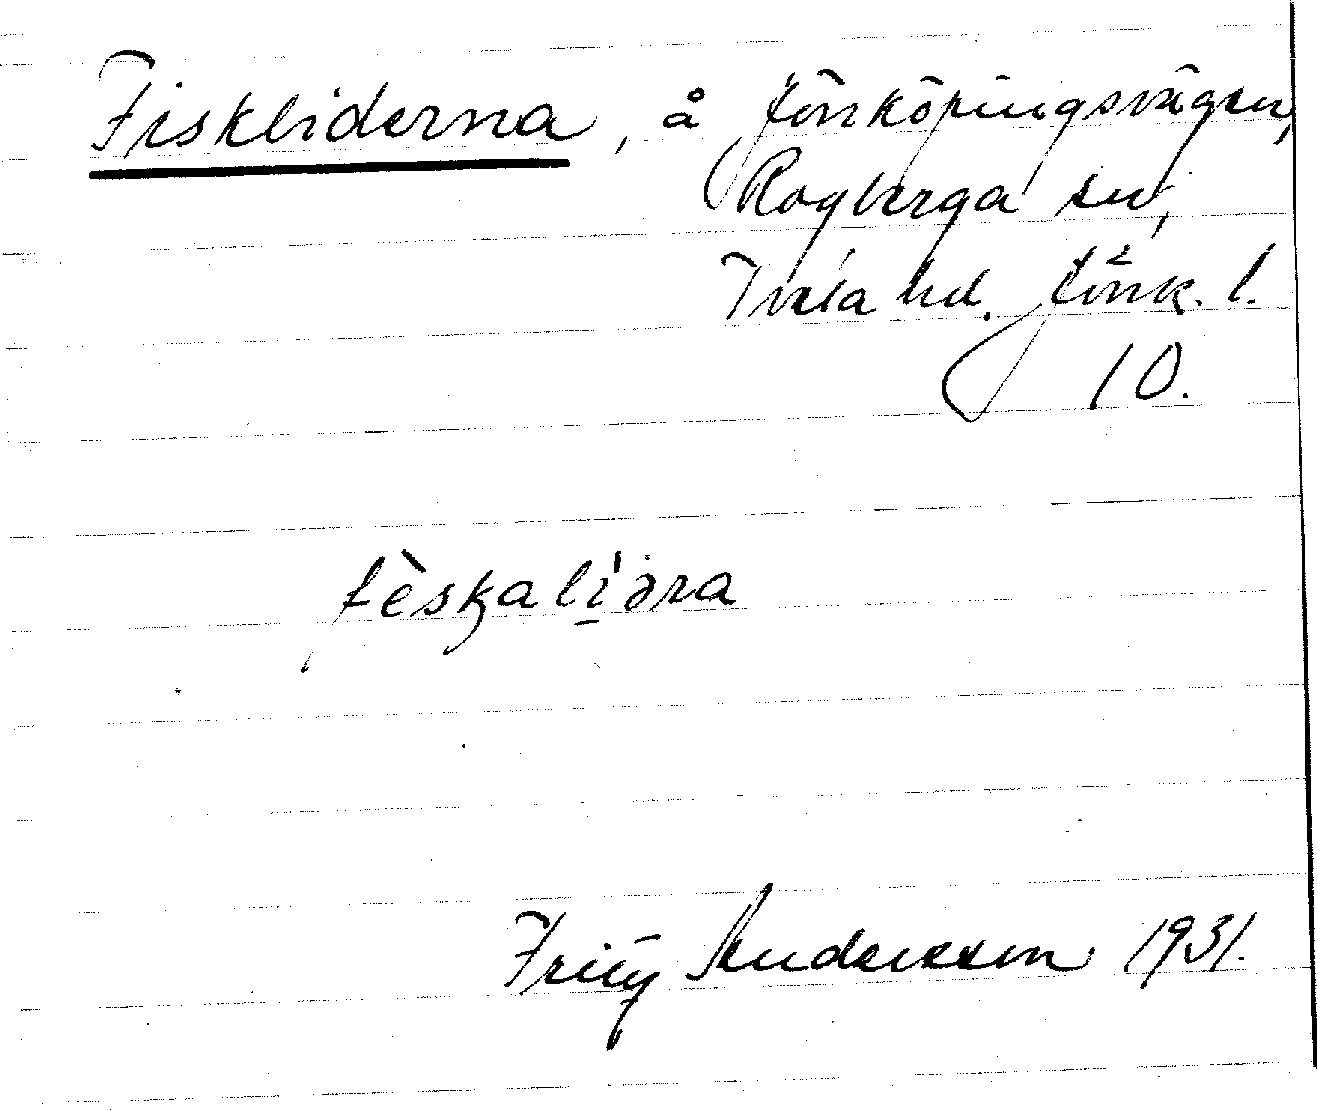 Fiskliderna, å Jönköpingsvägen,
Rogberga sn,
Tveta hd. Jönk. l.
10.
fèskalídra
Fritz Andersson 1931.